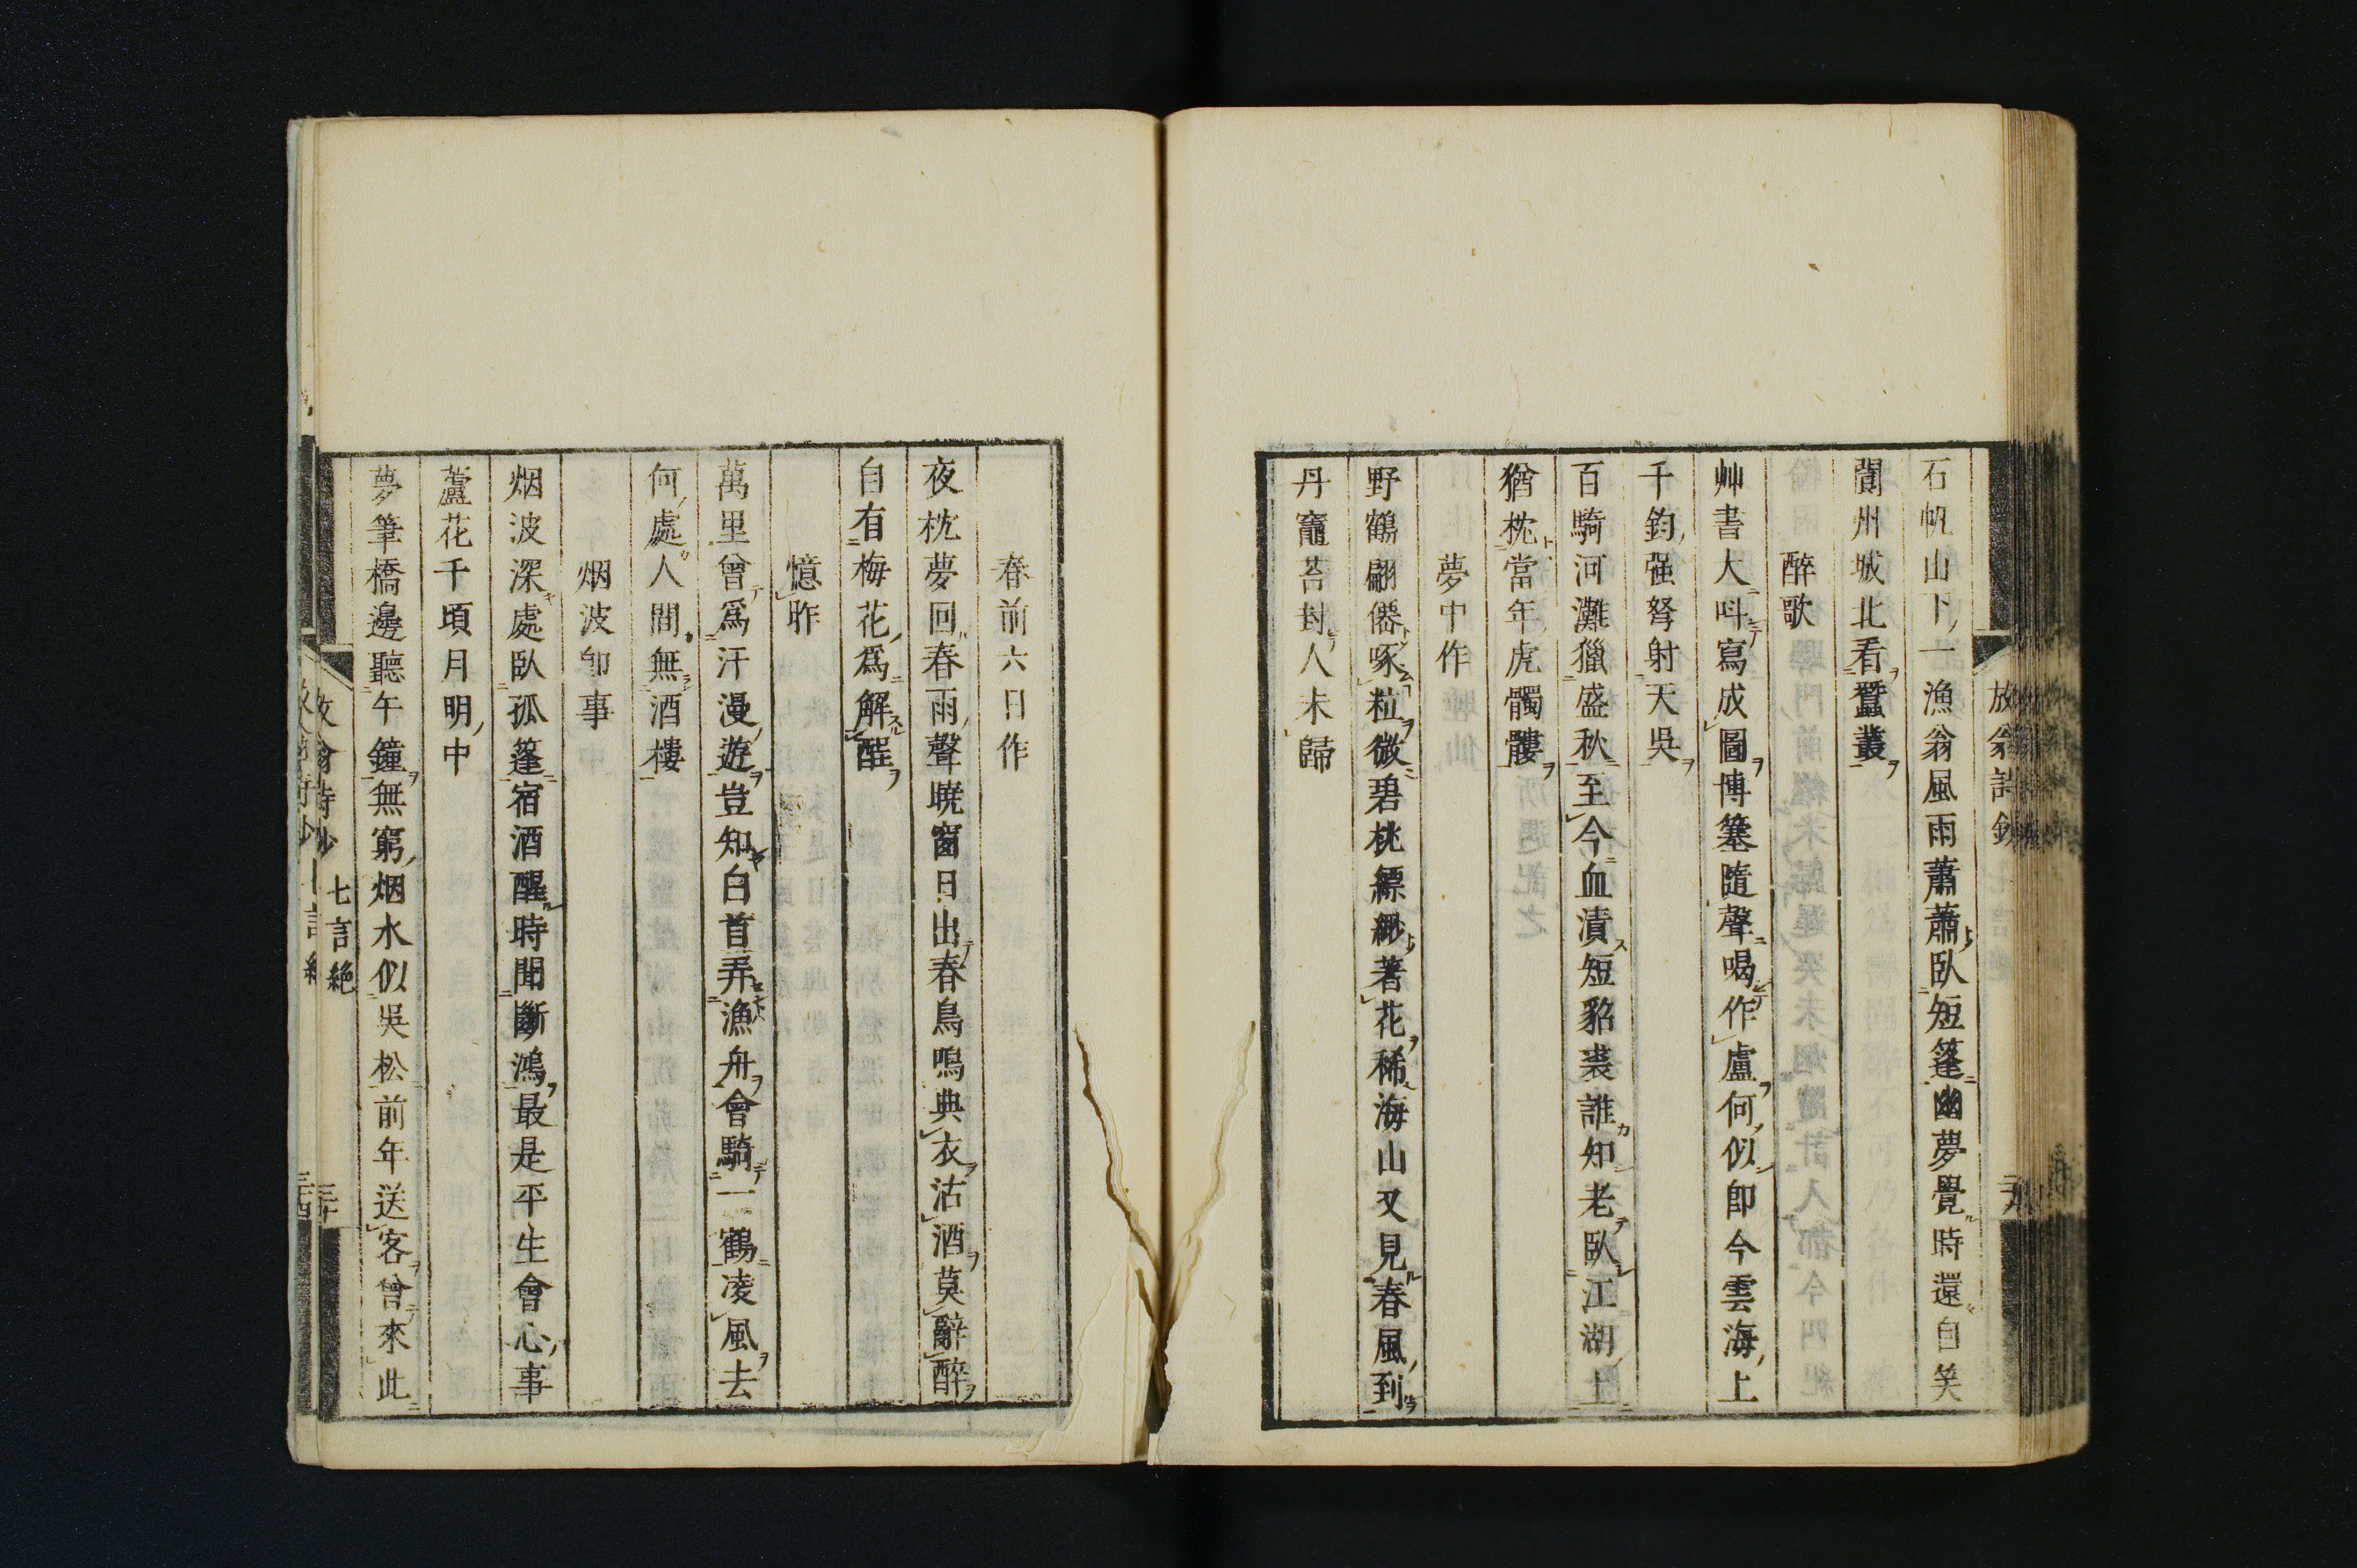 石帆山下一漁翁風雨蕭蕭臥短篷幽夢覺時還自笑
閬州城北看蠶叢
醉歌
艸書大叫寫成圖博簺隨聲喝作盧何似卽今雲海上
千鈞强弩射天吳
百騎河灘獵盛秋至今血漬短貂裘誰知老臥江湖上
猶枕當年虎髑髏
夢中作
野鶴翩僊啄粒微碧桃縹緲著花稀海山又見春風到
丹竈苔封人未歸
放翁詩鈔
春前六日作
夜枕夢回春雨聲曉窗日出春鳥鳴典衣沽酒莫辭醉
自有梅花爲解酲
憶昨
萬里曾爲汗漫遊豈知白首弄漁舟會騎一鶴凌風去
何處人間無酒樓
烟波卽事
烟波深處臥孤篷宿酒醒時聞斷鴻最是平生會心事
蘆花千頃月明中
夢筆橋邊聽午鐘無窮烟水似吳松前年送客曾來此
七言絶